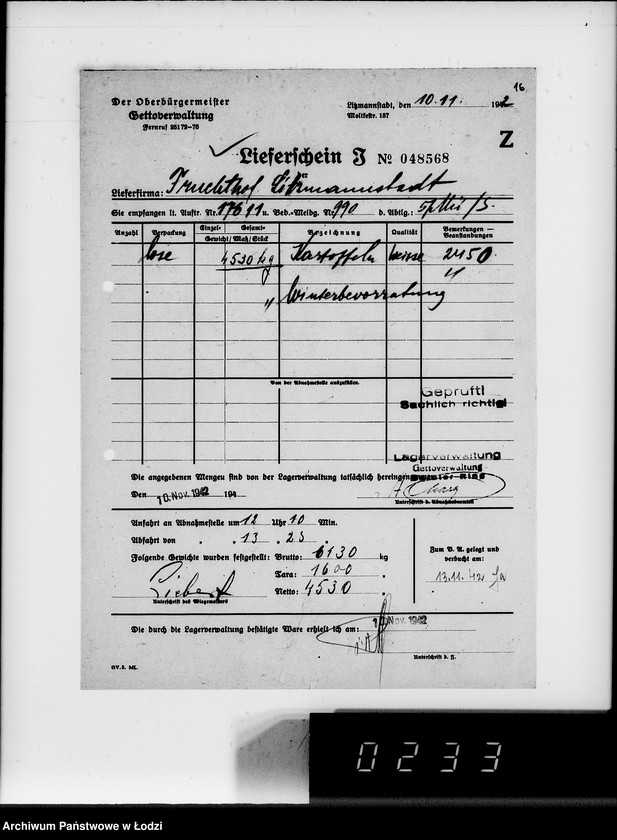 16
Der Oberbürgermeister
Gettoverwaltung
Fernruf 25172-76
Litzmannstadt, den 10.11. 1942
Moltkestr. 157
Z
Lieferschein J № 048568
Lieferfirma: Fruchthof Litzmannstadt
Sie empfangen lt. Auftr. Nr. 17611 u. Bed.-Meldg. Nr. 990 d. Abtlg.:
Anzahl Verpackung Einzel- Gesamt- Gewicht/Maß/Stück Bezeichnung Qualität Bemerkungen – Beanstandungen
lose 4530 kg Kartoffeln weisse 2450
" Winterbevorratung "
Von der Abnahmestelle auszufüllen.
Geprüft!
Sachlich richtig!
Lagerverwaltung
Gettoverwaltung
Die angegebenen Mengen sind von der Lagerverwaltung tatsächlich hereingenommen
Den 10. Nov. 1942 194
Unterschrift d. Abnahmebeamten
Anfahrt an Abnahmestelle um 12 Uhr 10 Min.
Abfahrt von " " 13 " 25 "
Folgende Gewichte wurden festgestellt: Brutto: 6130 kg
Tara: 1600 "
Netto: 4530 "
Siebert
Unterschrift des Wiegemeisters
Zum B. A. gelegt und
verbucht am:
13.11.42
Die durch die Lagerverwaltung bestätigte Ware erhielt ich am: 10. Nov. 1942
Unterschrift d. J.
GV. 2. ML.
0233
Archiwum Państwowe w Łodzi